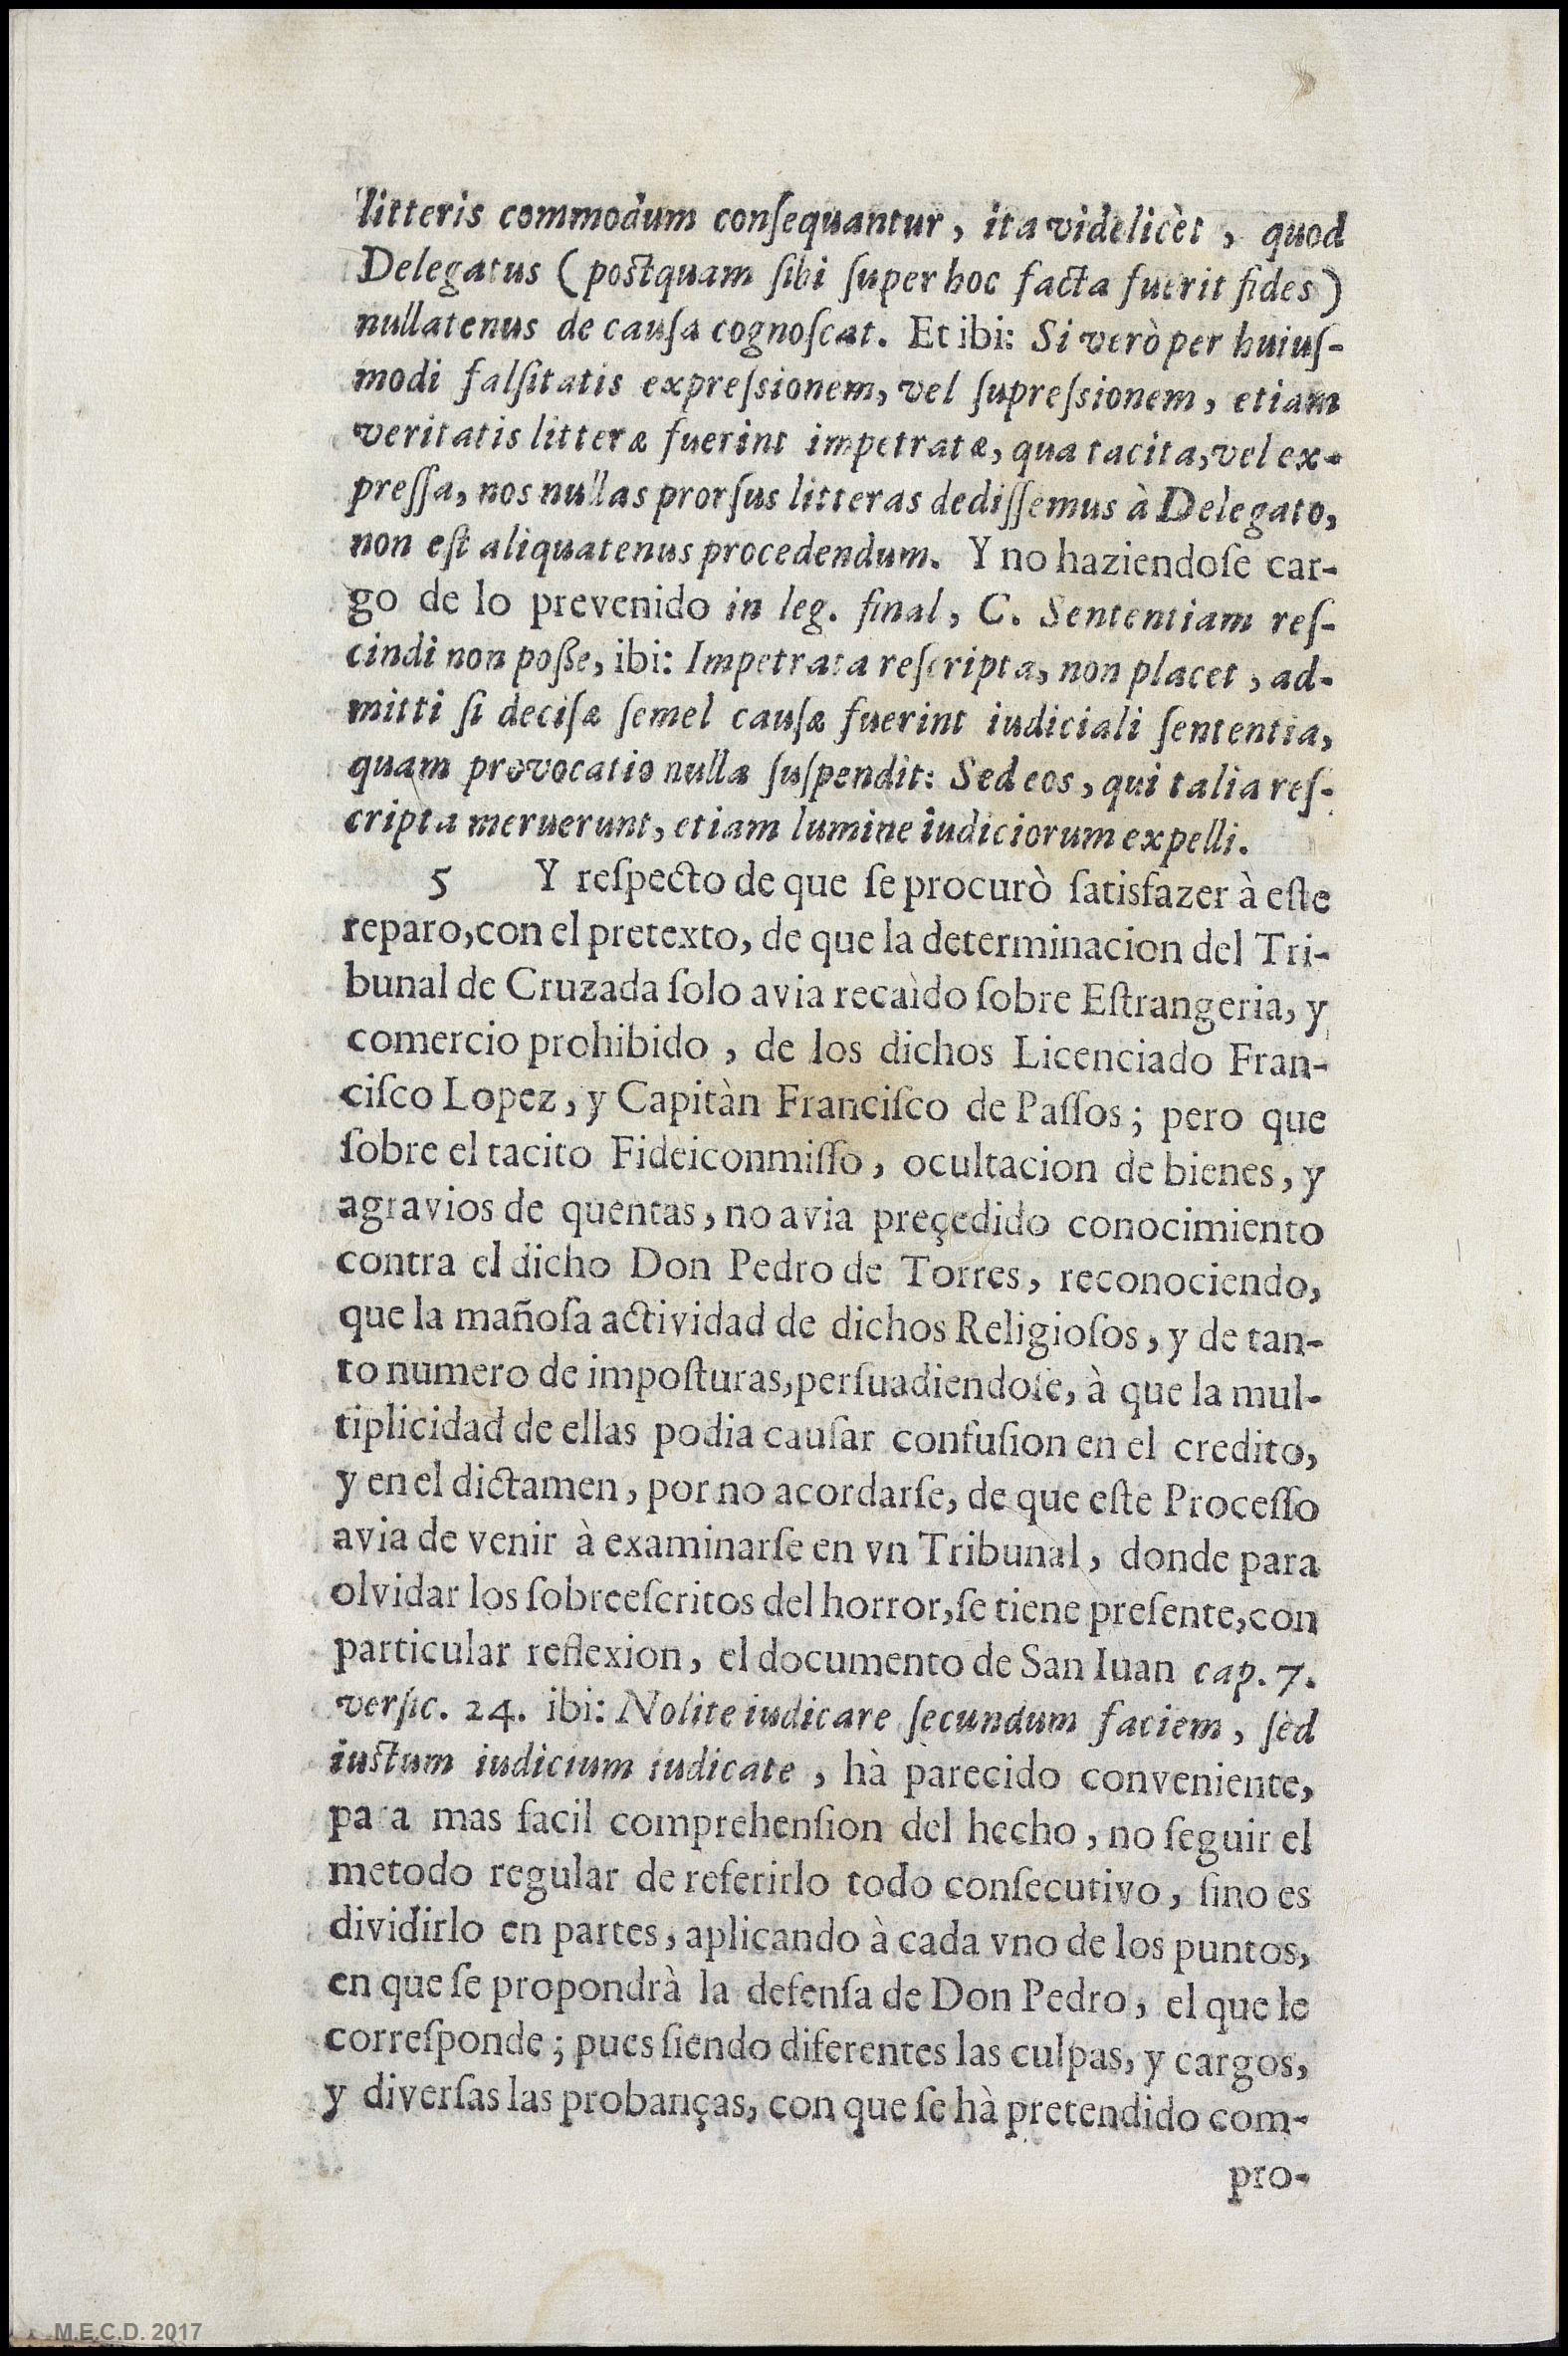 litteris commodum conſequantur, ita videlicèt, quod
Delegatus (poſtquam ſibi ſuper hoc facta fuerit fides)
nullatenus de cauſa cognoſcat. Et ibi: Si verò per huiuſ-
modi falſitatis expreſsionem, vel ſupreſsionem, etiam
veritatis litteræ fuerint impetratæ, qua tacita, vel ex-
preſſa, nos nullas prorſus litteras dediſſemus à Delegato,
non eſt aliquatenus procedendum. Y no haziendoſe car-
go de lo prevenido in leg. final, C. Sententiam reſ-
cindi non poße, ibi: Impetrata reſcripta, non placet, ad-
mitti ſi deciſæ ſemel cauſæ fuerint iudiciali ſententia,
quam provocatio nulla ſuſpendit: Sed eos, qui talia reſ-
cripta meruerunt, etiam lumine iudiciorum expelli.
5 Y reſpecto de que ſe procurò ſatisfazer à eſte
reparo, con el pretexto, de que la determinacion del Tri-
bunal de Cruzada ſolo avia recaìdo ſobre Eſtrangeria, y
comercio prohibido, de los dichos Licenciado Fran-
ciſco Lopez, y Capitàn Franciſco de Paſſos; pero que
ſobre el tacito Fideiconmiſſo, ocultacion de bienes, y
agravios de quentas, no avia preçedido conocimiento
contra el dicho Don Pedro de Torres, reconociendo,
que la mañoſa actividad de dichos Religioſos, y de tan-
to numero de impoſturas, perſuadiendoſe, à que la mul-
tiplicidad de ellas podia cauſar confuſion en el credito,
y en el dictamen, por no acordarſe, de que eſte Proceſſo
avia de venir à examinarſe en vn Tribunal, donde para
olvidar los ſobreeſcritos del horror, ſe tiene preſente, con
particular reflexion, el documento de San Iuan cap. 7.
verſic. 24. ibi: Nolite iudicare ſecundum faciem, ſed
iuſtum iudicium iudicate, hà parecido conveniente,
para mas facil comprehenſion del hecho, no ſeguir el
metodo regular de referirlo todo conſecutivo, ſino es
dividirlo en partes, aplicando à cada vno de los puntos,
en que ſe propondrà la defenſa de Don Pedro, el que le
correſponde; pues ſiendo diferentes las culpas, y cargos,
y diverſas las probanças, con que ſe hà pretendido com-
pro-
M.E.C.D. 2017